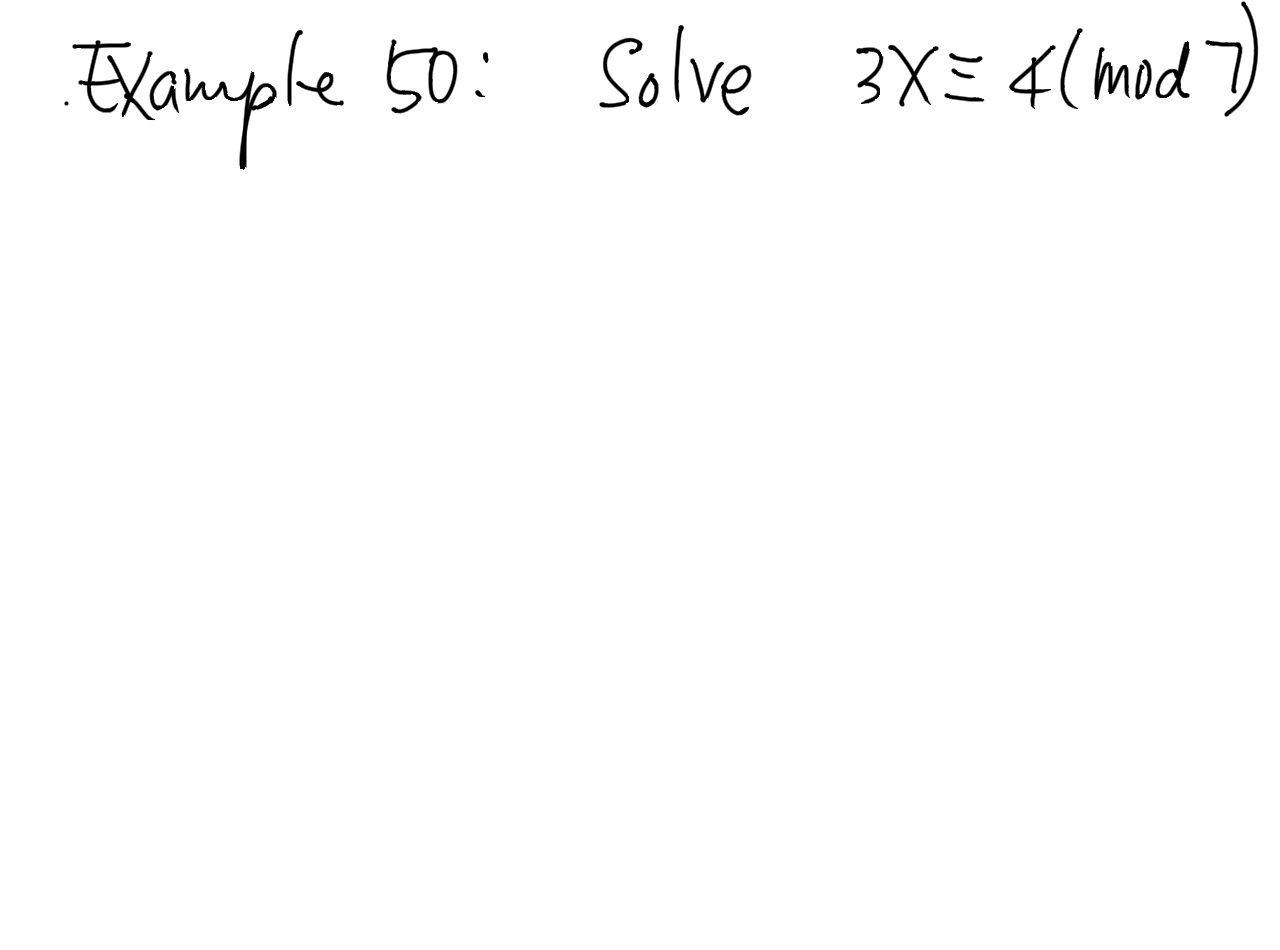 Example 50: Solve 3X ≡ 4 (mod 7)